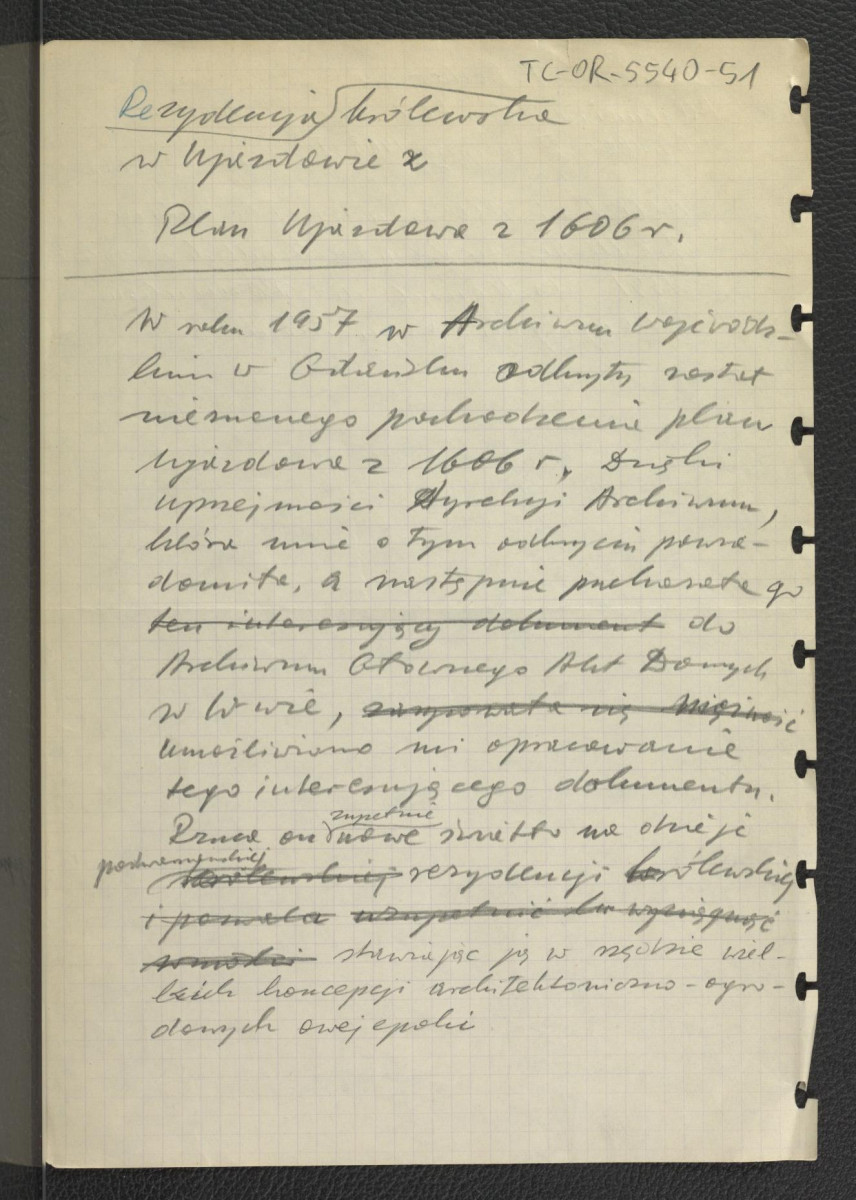 TC-OR-5540-51
Rezydencja królewska
w Ujazdowie z
Plan Ujazdowa z 1606 r.
W roku 1957 w Archiwum Wojewódz-
kim w Gdańsku odkryty został
nieznanego pochodzenia plan
Ujazdowa z 1606 r. Dzięki
uprzejmości Dyrekcji Archiwum,
która mnie o tym odkryciu powia-
domiła, a następnie przekazała go
ten interesujący dokument do
Archiwum Głównego Akt Dawnych
w W-wie,
umożliwiono mi opracowanie
tego interesującego dokumentu.
zupełnie
Rzuca on nowe światło na dzieje
podwarszawskiej
królewskiej rezydencji królewskiej
i pozwala uzupełnić lub wyciągnąć
wnioski stawiając ją w rzędzie wiel-
kich koncepcji architektoniczno-ogro-
dowych owej epoki